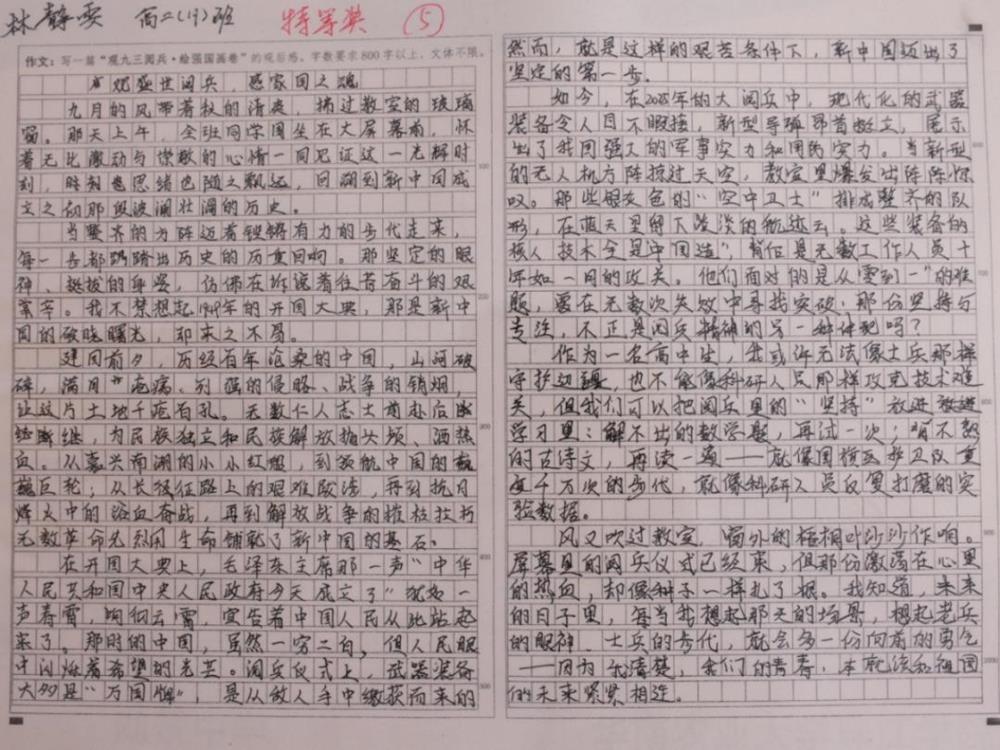 林静雯 高二(19)班 特等奖 ⑤
作文：写一篇“观九三阅兵·绘强国画卷”的观后感。字数要求800字以上，文体不限。
观盛世阅兵，感家国之魂
九月的风带着秋的清爽，拂过教室的玻璃
窗。那天上午，全班同学围坐在大屏幕前，怀
着无比激动与崇敬的心情一同见证这一光辉时
刻，我的思绪也随之飘远，回溯到新中国成
立之初那段波澜壮阔的历史。
当整齐的方阵迈着铿锵有力的步伐走来，
每一步都踏出历史的厚重回响。那坚定的眼
神、挺拔的身姿，仿佛在诉说着往昔奋斗的艰
辛。我不禁想起1949年的开国大典，那是新中
国的破晓曙光，却来之不易。
建国前夕，历经百年沧桑的中国，山河破
碎，满目疮痍。列强的侵略、战争的硝烟，
让这片土地千疮百孔。无数仁人志士前赴后
继，为民族独立和民族解放抛头颅、洒热
血。从嘉兴南湖的小小红船，到领航中国的巍
巍巨轮；从长征路上的艰难跋涉，再到抗日
烽火中的浴血奋战，再到解放战争的摧枯拉朽
无数革命先烈用生命铺就了新中国的基石。
在开国大典上，毛泽东主席那一声“中华
人民共和国中央人民政府今天成立了”犹如一
声春雷，响彻云霄，宣告着中国人民从此站起
来了。那时的中国，虽然一穷二白，但人民眼
中闪烁着希望的光芒。阅兵仪式上，武器装备
大多是“万国牌”，是从敌人手中缴获而来的
然而，就是这样的艰苦条件下，新中国迈出了
坚定的第一步。
如今，在2025年的大阅兵中，现代化的武器
装备令人目不暇接，新型导弹昂首挺立，展示
出了我国强大的军事实力和国防实力。当新型
的无人机方阵掠过天空，教室里爆发出阵阵惊
叹。那些银灰色的“空中卫士”排成整齐的队
形，在蓝天里留下淡淡的航迹云。这些装备的
核心技术全是中国造”，背后是无数工作人员十
年如一日的攻关。他们面对的是从“零到一”的难
题，要在无数次失败中寻找突破，那份坚持与
专注，不正是阅兵精神的另一种体现吗？
作为一名高中生，我或许无法像士兵那样
守护边疆，也不能像科研人员那样攻克技术难
关，但我们可以把阅兵里的“坚持”放进
学习里：解不出的数学题，再试一次；背不熟
的古诗文，再读一遍——就像国旗护卫队重
复千万次的步伐，就像科研人员反复打磨的实
验数据。
风又吹过教室，窗外的梧桐叶沙沙作响。
屏幕里的阅兵仪式已经结束，但那份激荡在心里
的热血，却像种子一样扎了根。我知道，未来
的日子里，每当我想起那天的场景，想起老兵
的眼神、士兵的步伐，就会多一份向前的勇气
——因为我清楚，我们的青春，本就该和祖国
的未来紧紧相连。